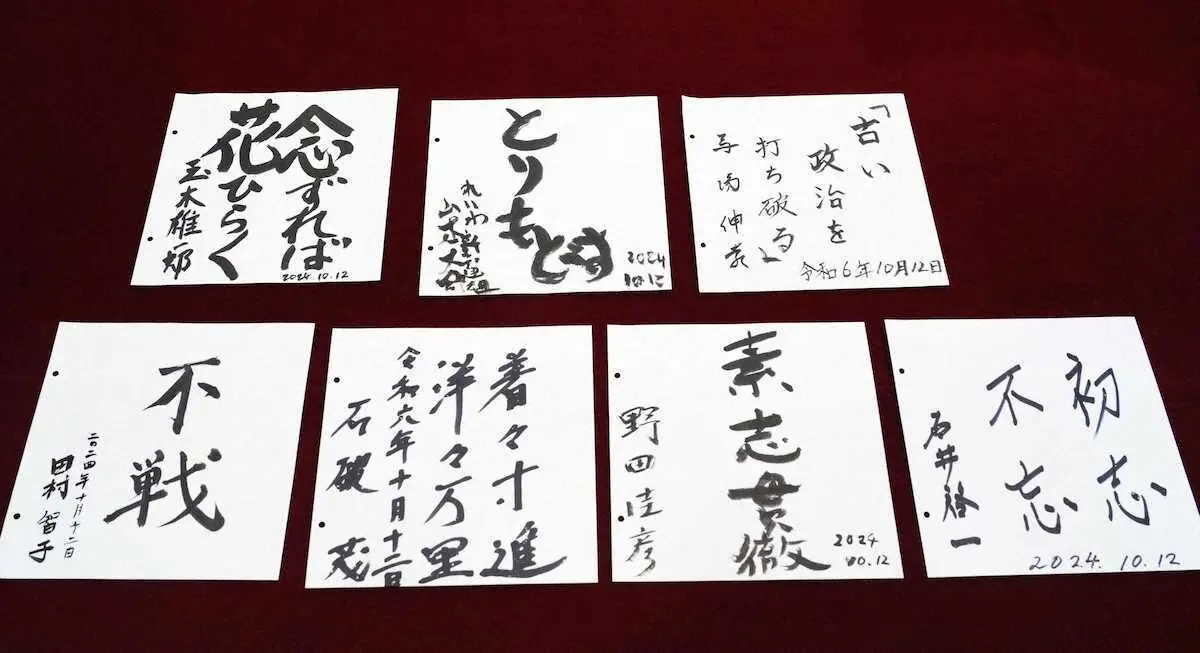 念ずれば
花ひらく
玉木雄一郎
2024.10.12
とりもどす
れいわ新選組
山本太郎
2024
10.12
「古い
政治を
打ち破る」
馬場伸幸
令和6年10月12日
不戦
二〇二四年十月十二日
田村智子
着々寸進
洋々万里
令和六年十月十二日
石破茂
素志貫徹
野田佳彦
2024
10.12
初志
不忘
石井啓一
2024.10.12